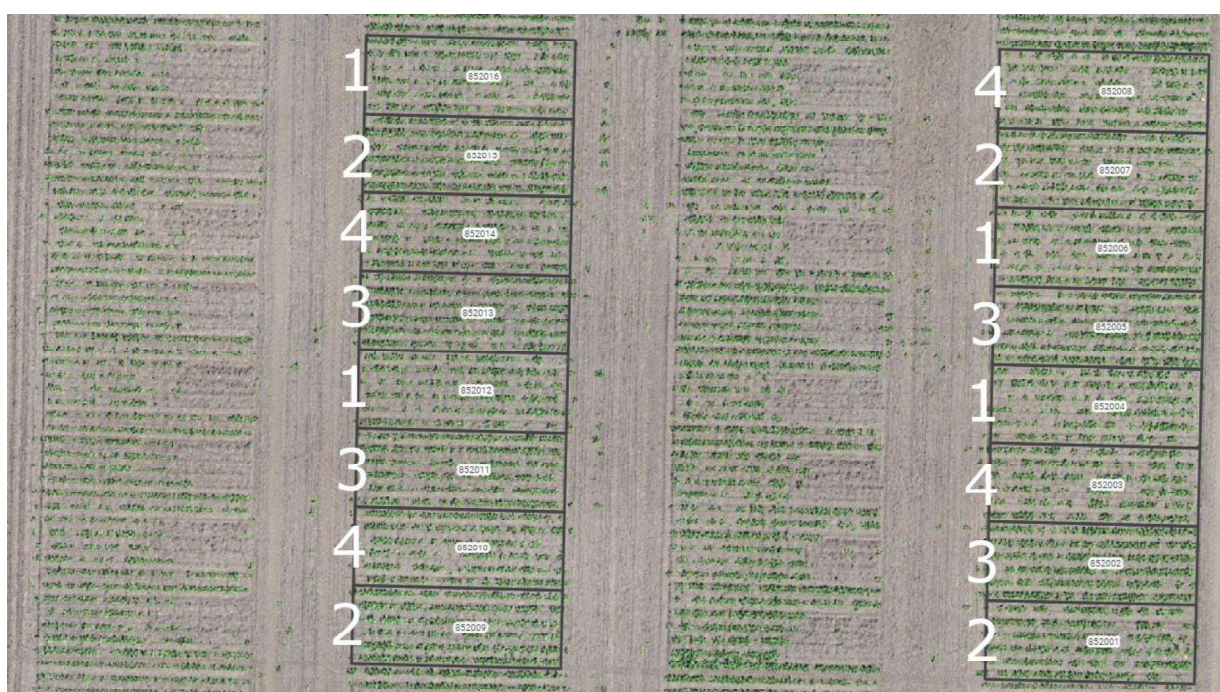 1 852016
2 852015
4 852014
3 852013
1 852012
3 852011
4 852010
2 852009
4 852008
2 852007
1 852006
3 852005
1 852004
4 852003
3 852002
2 852001